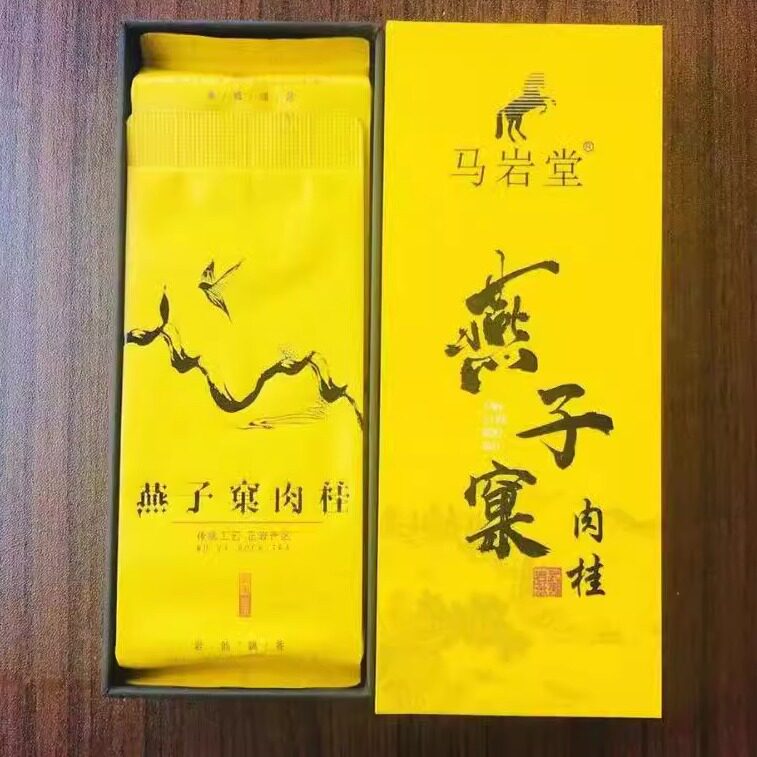 燕子窠肉桂
传统工艺 正岩产区
WU YI ROCK TEA
岩韵飘香
马岩堂®
燕子窠
肉桂